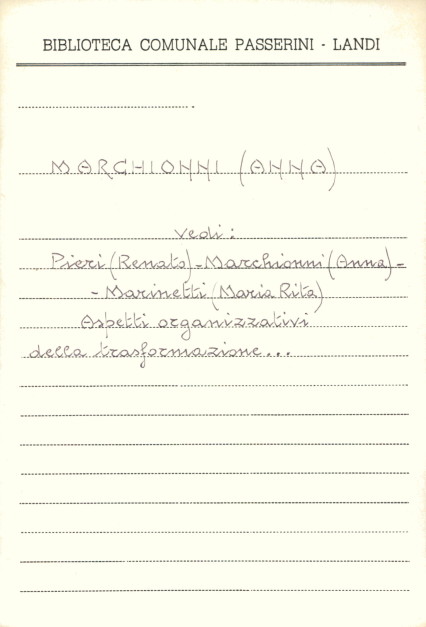 BIBLIOTECA COMUNALE PASSERINI - LANDI
MARCHIONNI (ANNA)
vedi:
Pieri (Renato) - Marchionni (Anna) -
- Marinetti (Maria Rita)
Aspetti organizzativi
della trasformazione...